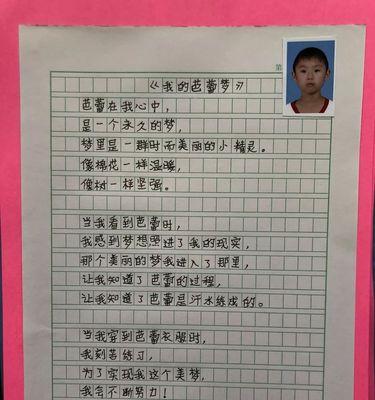 第
《我的芭蕾梦》
芭蕾在我心中，
是一个永久的梦，
梦里是一群时而美丽的小精灵。
像棉花一样温暖，
像树一样坚强。
当我看到芭蕾时，
我感到梦想照进了我的现实，
那个美丽的梦我进入了那里，
让我知道了芭蕾的过程，
让我知道了芭蕾是汗水练成的。
当我穿到芭蕾衣服时，
我刻苦练习，
为了实现我这个美梦，
我会不断努力！